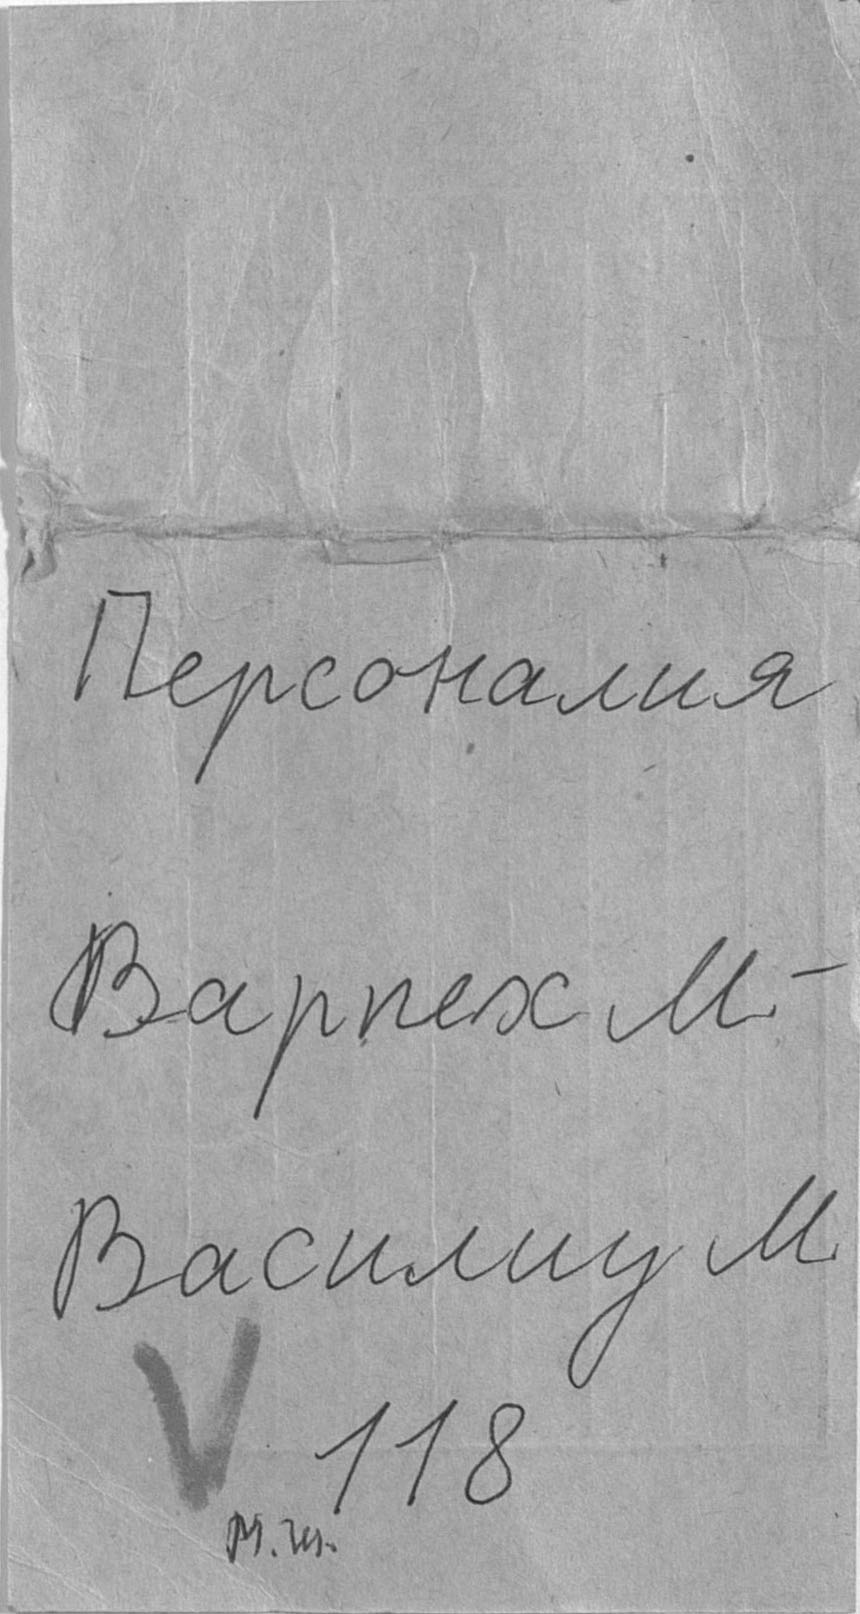 Персоналия
Варпех М -
Василиу М.
V 118